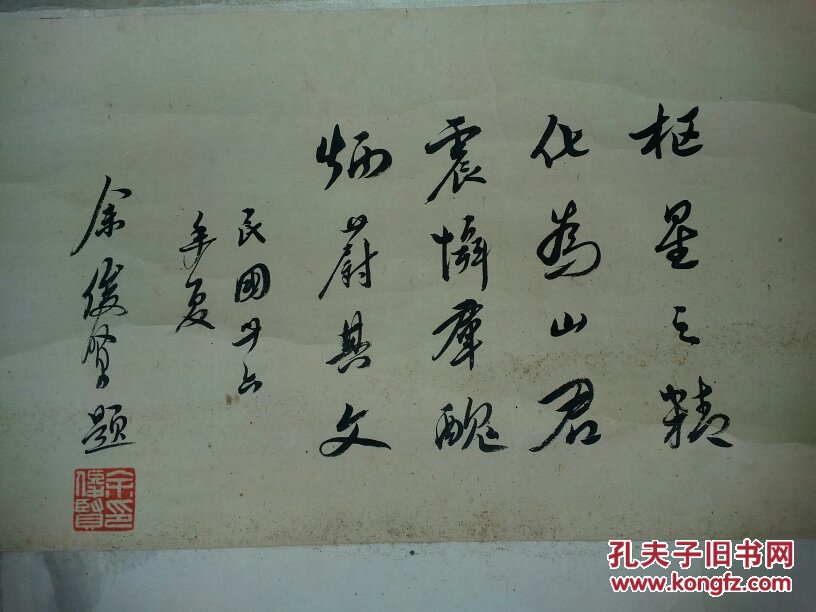 枢星之精
化為山君
震慑羣醜
炳蔚其文
民國卅六
年夏
余俊賢題
余印
俊賢
孔夫子旧书网
www.kongfz.com